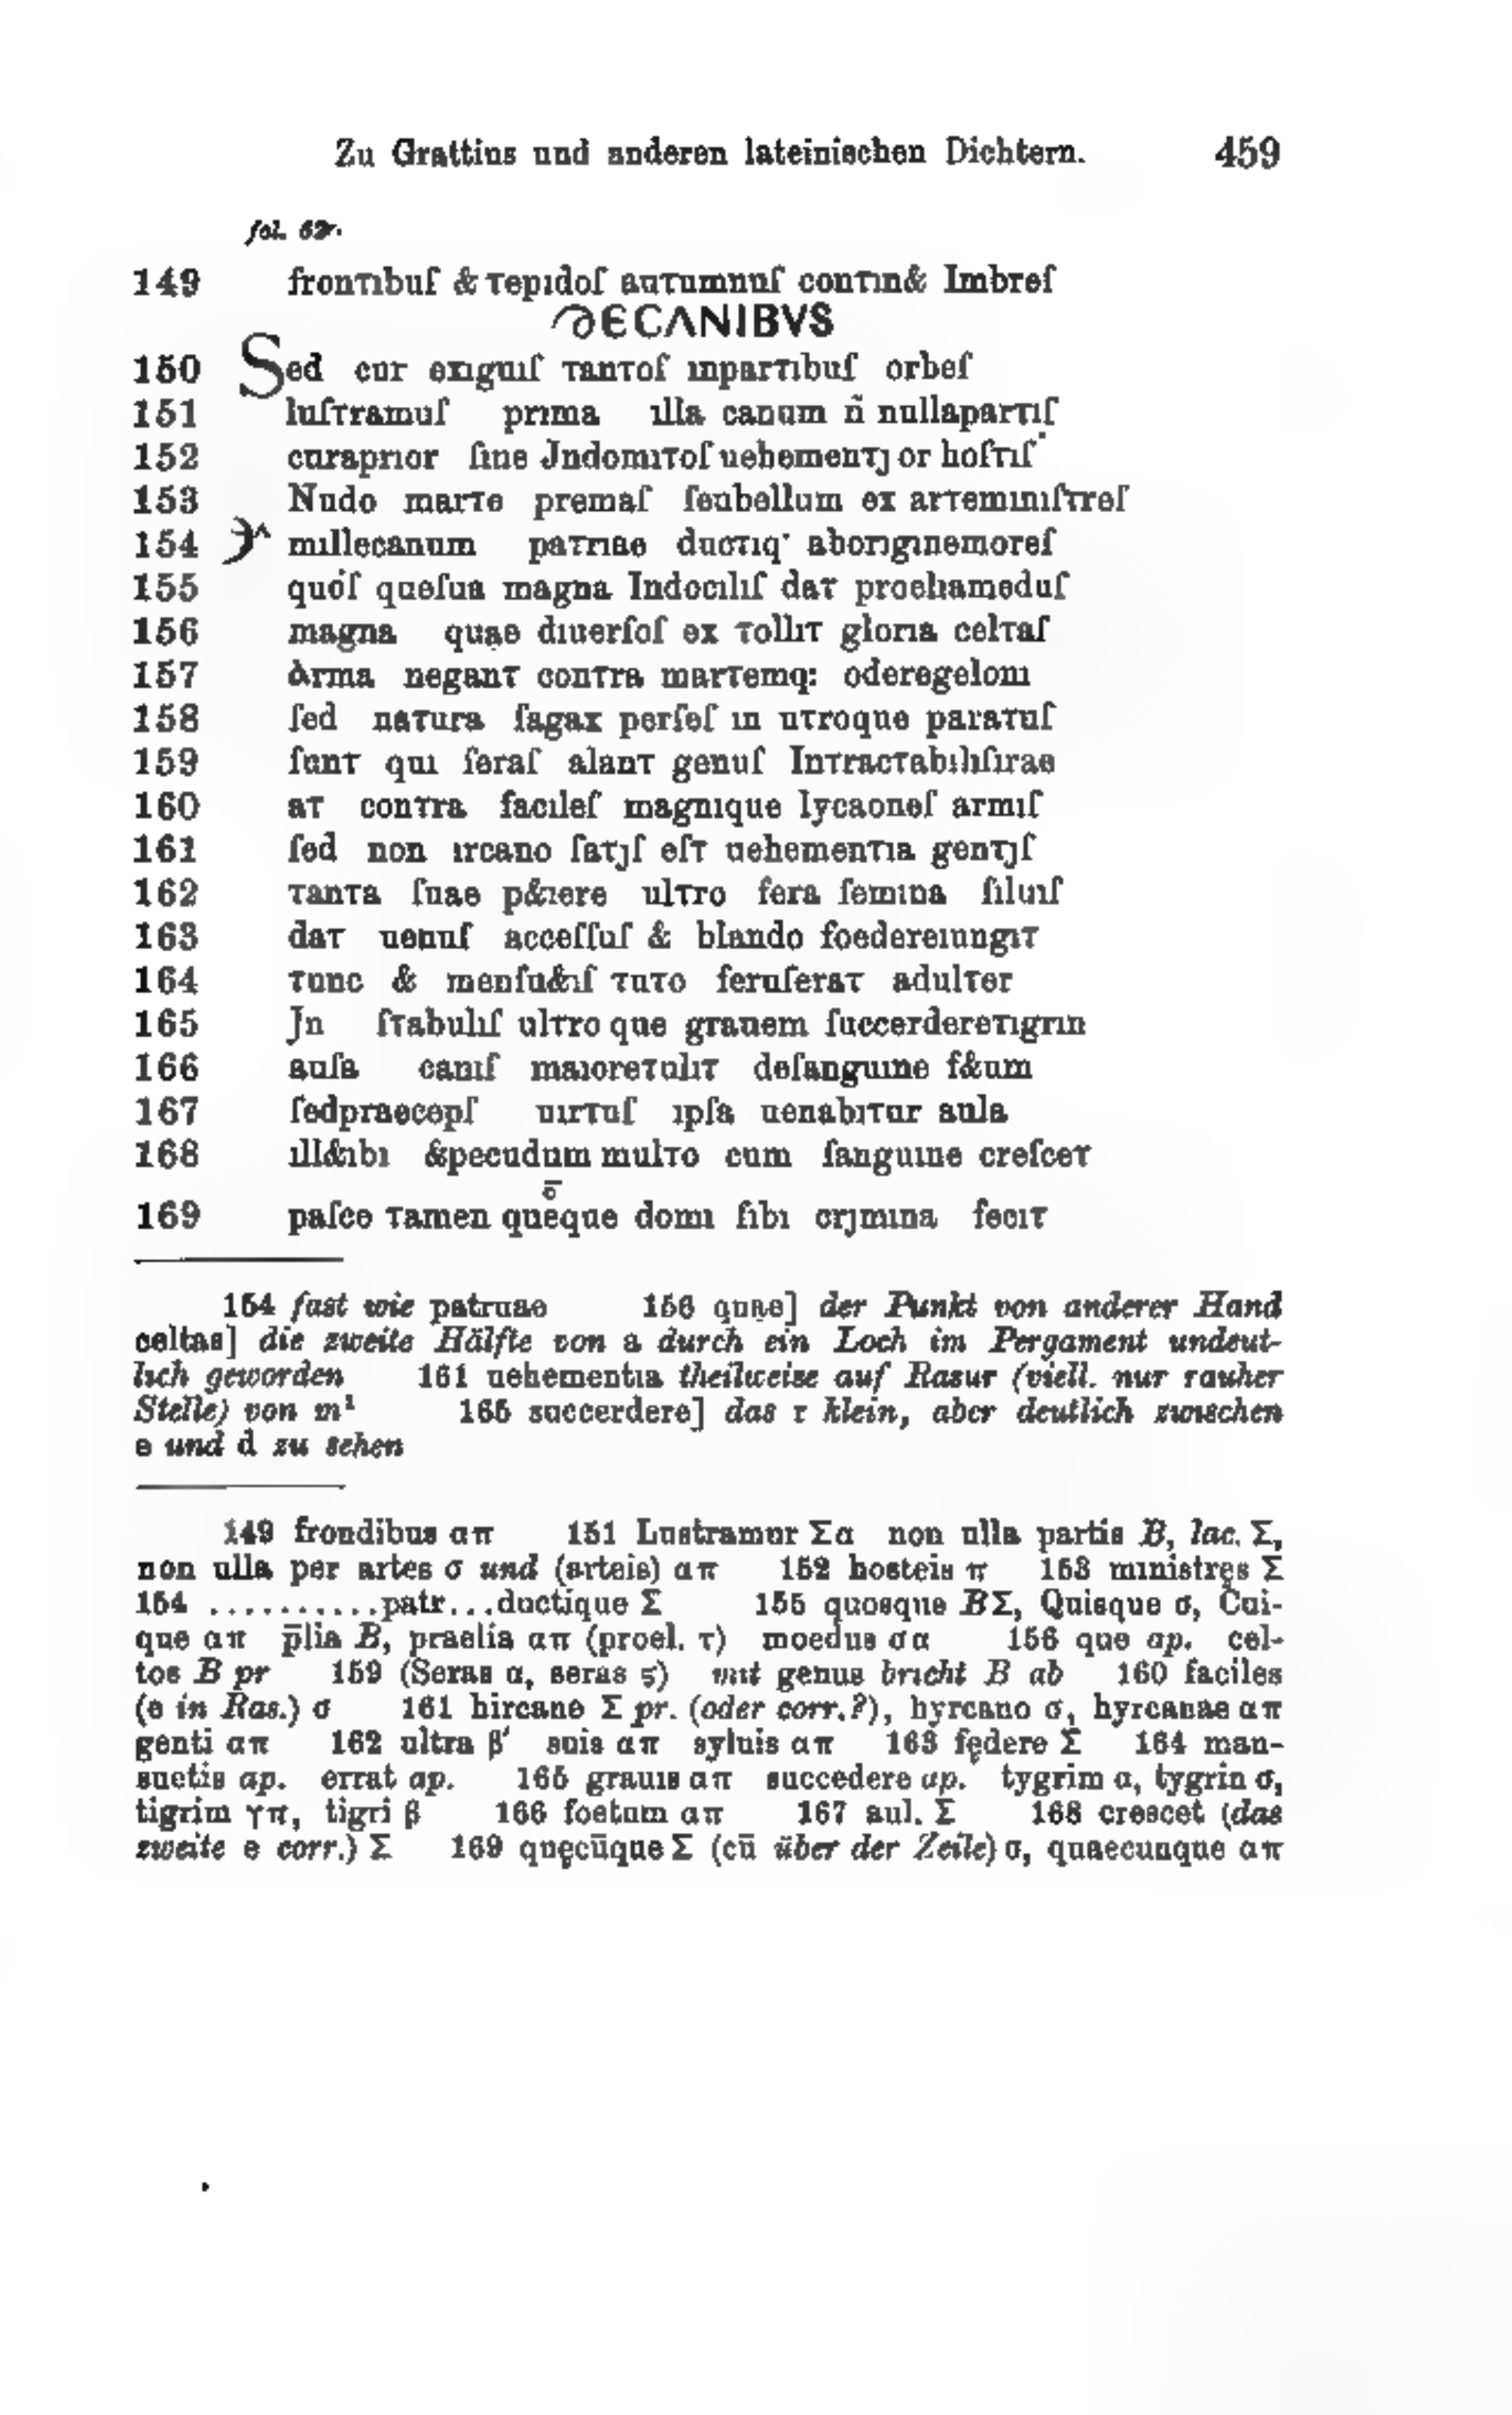 Zu Grattius und anderen lateinischen Dichtern. 459
fol. 62r.
149 fronτıbuſ & τepıdoſ auτumnuſ conτın& Imbreſ
DECANIBVS
150 Sed cur exıguıſ τanτoſ ınparτıbuſ orbeſ
151 luſτramuſ prıma ılla canum n̄ nullaparτıſ
152 curaprıor ſıne Jndomıτoſ uehemenτȷ or hoſτıſ
153 Nudo marτe premaſ ſeubellum ex arτemınıſτreſ
154 mıllecanum paτrıae ducτıq· aborıgınemoreſ
155 quoſ queſua magna Indocılıſ daτ proelıameduſ
156 magna quạe dıuerſoſ ex τollıτ glorıa celτaſ
157 Arma neganτ conτra marτemq: oderegelonı
158 ſed naτura ſagax perſeſ ın uτroque paraτuſ
159 ſunτ quı ſeraſ alanτ genuſ Inτracτabılıſırae
160 aτ conτra facıleſ magnıque lycaoneſ armıſ
161 ſed non ırcano ſaτȷſ eſτ uehemenτıa genτȷſ
162 τanτa ſuae p&ıere ulτro fera ſemına ſıluıſ
163 daτ uenuſ acceſſuſ & blando foedereıungıτ
164 τunc & menſu&ıſ τuτo feruſeraτ adulτer
165 Jn ſτabulıſ ulτro que grauem ſuccerdereτıgrın
166 auſa canıſ maıoreτulıτ deſanguıne f&um
167 ſedpraecepſ uırτuſ ıpſa uenabıτur aula
168 ıll&ıbı &pecudum mulτo cum ſanguıne creſceτ
169 paſce τamen queque domı ſıbı crȷmına fecıτ
154 fast wie patruae 156 quạe] der Punkt von anderer Hand
celtas] die zweite Hälfte von a durch ein Loch im Pergament undeut-
lich geworden 161 uehementıa theilweise auf Rasur (viell. nur rauher
Stelle) von m¹ 165 succerdere] das r klein, aber deutlich zwischen
e und d zu sehen
149 frondibus απ 151 Lustramur Σα non ulla partis B, lac. Σ,
non ulla per artes σ und (arteis) απ 152 hosteis π 153 ministręs Σ
154 ..........patr...ductique Σ 155 quosque BΣ, Quisque σ, Cui-
que απ p̄lia B, praelia απ (proel. τ) moedus σα 156 que ap. cel-
tos B pr 159 (Seras α, seras ς) mit genus bricht B ab 160 faciles
(e in Ras.) σ 161 hircane Σ pr. (oder corr.?), hyrcano σ, hyrcanae απ
genti απ 162 ultra β′ suis απ syluis απ 163 fędere Σ 164 man-
suetis ap. errat ap. 165 grauis απ succedere ap. tygrim α, tygrin σ,
tigrim γπ, tigri β 166 foetum απ 167 aul. Σ 168 crescet (das
zweite e corr.) Σ 169 quęcūque Σ (cū über der Zeile) σ, quaecunque απ